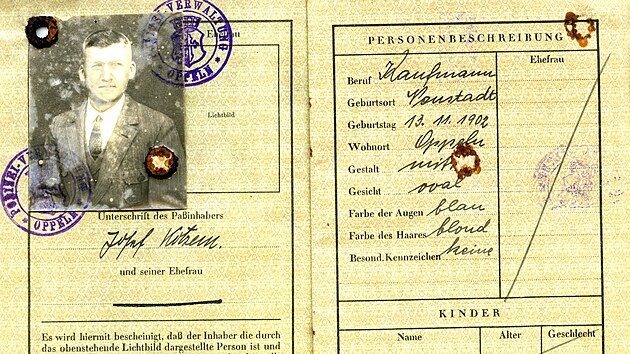 POLIZEI-VERWALTUNG
OPPELN
Ehefrau
Lichtbild
POLIZEI-VERWALTUNG
OPPELN
Unterschrift des Paßinhabers
Josef
und seiner Ehefrau
Es wird hiermit bescheinigt, daß der Inhaber die durch
das obenstehende Lichtbild dargestellte Person ist und
PERSONENBESCHREIBUNG
Ehefrau
Beruf Kaufmann
Geburtsort Neustadt
Geburtstag 13. 11. 1902
Wohnort Oppeln
Gestalt mittel
Gesicht oval
Farbe der Augen blau
Farbe des Haares blond
Besond. Kennzeichen keine
KINDER
Name Alter Geschlecht